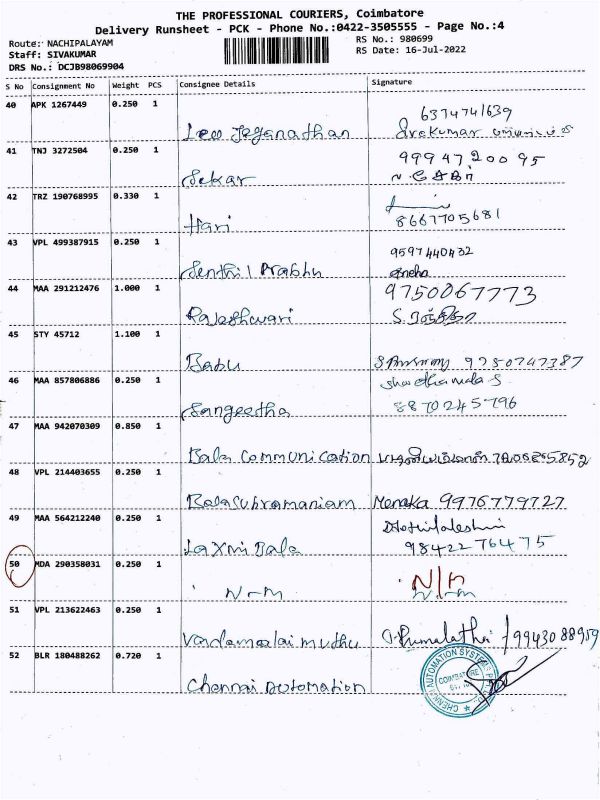 THE PROFESSIONAL COURIERS, Coimbatore
Delivery Runsheet - PCK - Phone No.:0422-3505555 - Page No.:4
Route: NACHIPALAYAM
RS No.: 980699
Staff: SIVAKUMAR
RS Date: 16-Jul-2022
DRS No.: DCJB98069904
S No Consignment No Weight PCS Consignee Details Signature
40 APK 1267449 0.250 1
6374741639
Leo Jeganathan
41 TNJ 3272504 0.250 1
9994720095
Sekar
42 TRZ 190768995 0.330 1
Hari 8667705681
43 VPL 499387915 0.250 1
9597440432
Senthil Prabhu Sneha
44 MAA 291212476 1.000 1
9750067773
Rajeshwari
45 STY 45712 1.100 1
Babu 9750747387
46 MAA 857806886 0.250 1
Sangeetha 8870245796
47 MAA 942070309 0.850 1
Bala Communication
48 VPL 214403655 0.250 1
Balasubramaniam Menaka 9976779727
49 MAA 564212240 0.250 1
Laxmi Bala 98422 76475
50 MDA 290358031 0.250 1
N-M
51 VPL 213622463 0.250 1
Vardamaalai muthu /9943088959
52 BLR 180488262 0.720 1
Chennai Automation